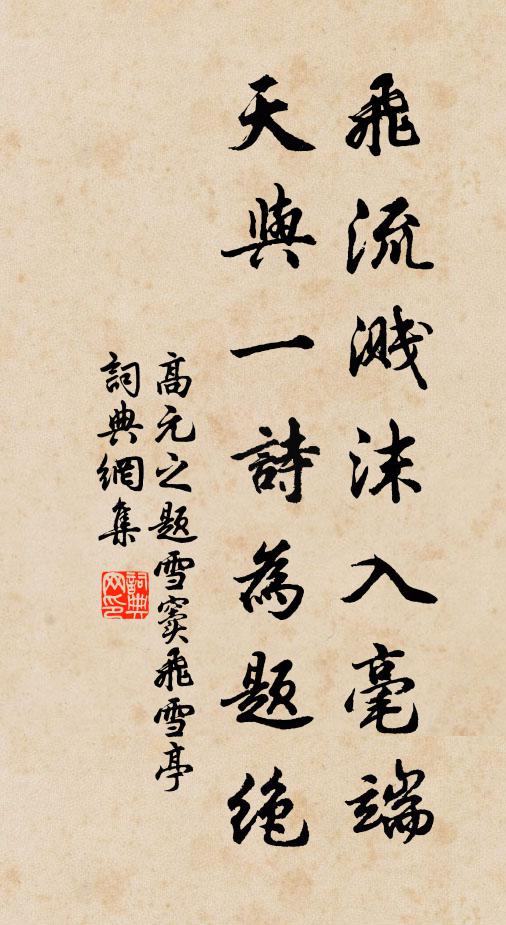 飛流濺沫入毫端
天與一詩為題絕
高元之題雪竇飛雪亭
詞典網集
詞典网印